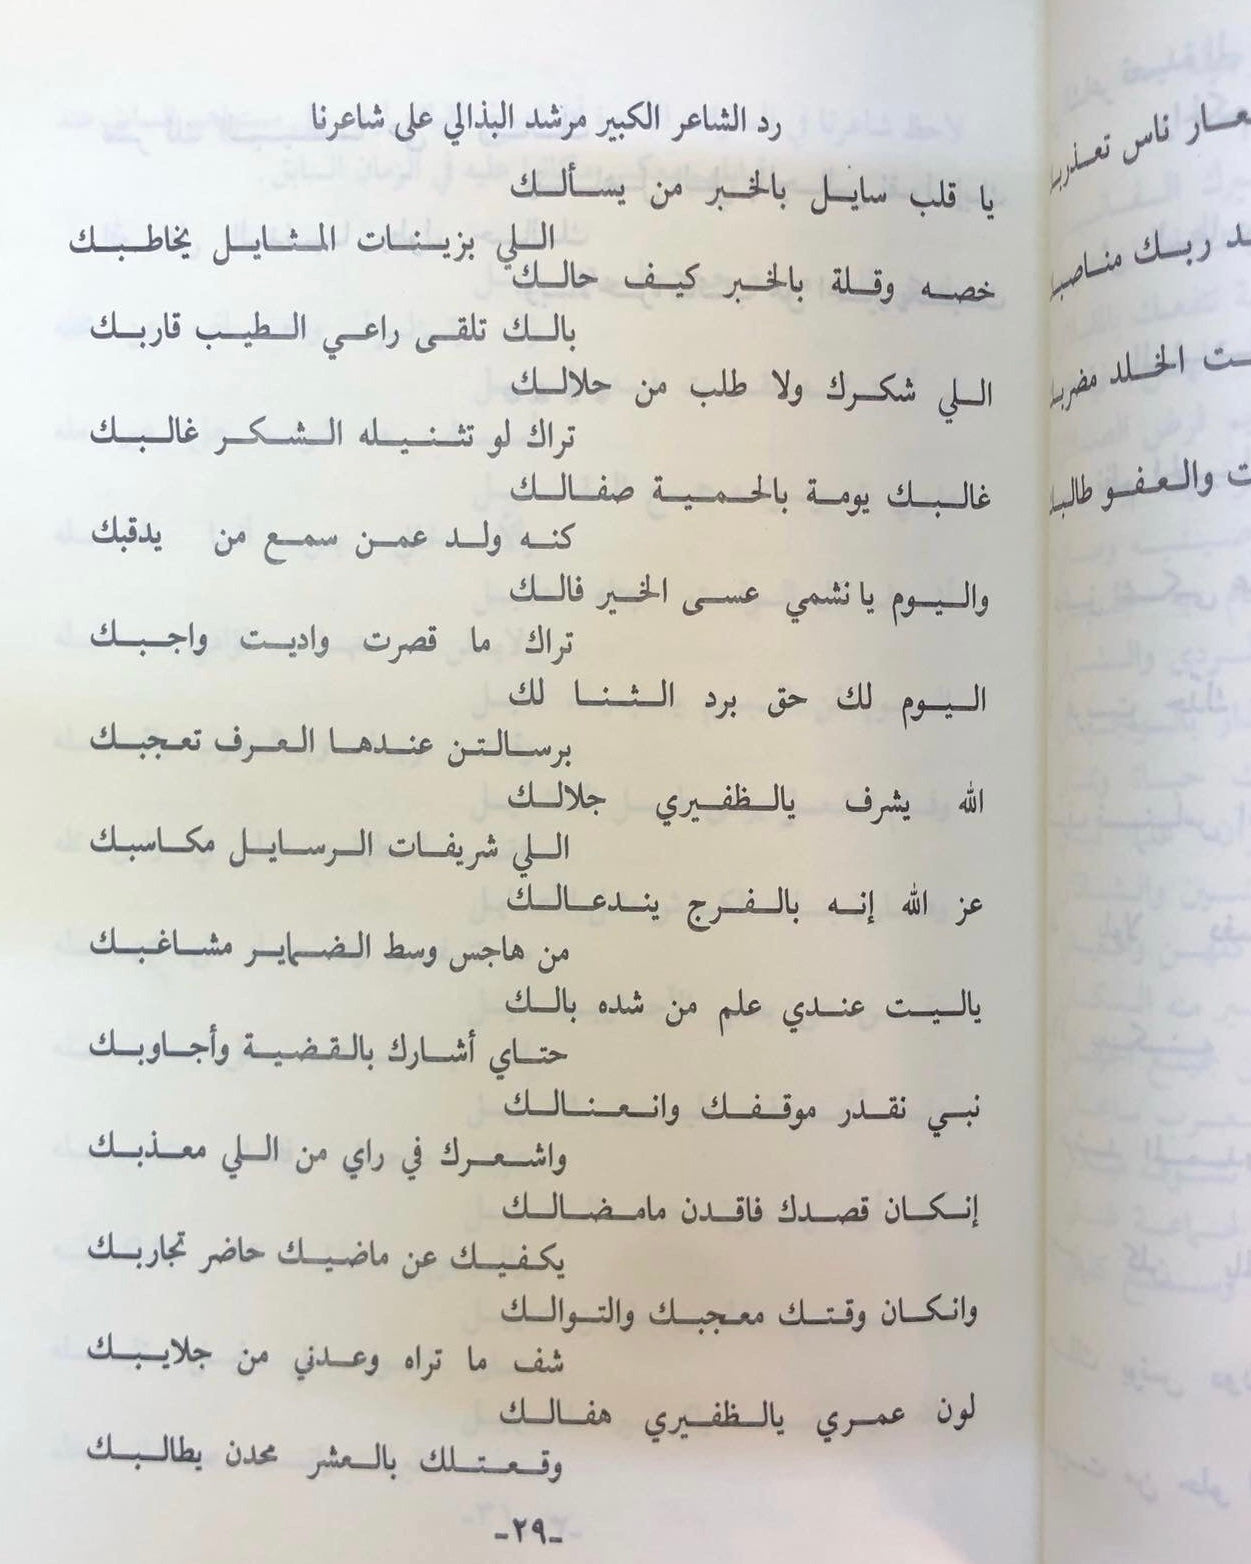 رد الشاعر الكبير مرشد البذالي على شاعرنا
يا قلب سايل بالخبر من يسألك
اللي بزينات المثايل يخاطبك
خصه وقلة بالخبر كيف حالك
بالك تلقى راعي الطيب قاربك
اللي شكرك ولا طلب من حلالك
تراك لو تثنيله الشكر غالبك
غالبك يومة بالحمية صفالك
كنه ولد عمن سمع من يدقبك
واليوم يا نشمي عسى الخير فالك
تراك ما قصرت واديت واجبك
اليوم لك حق برد الثنا لك
برسالتن عندها العرف تعجبك
الله يشرف يالظفيري جلالك
اللي شريفات الرسايل مكاسبك
عز الله إنه بالفرج يندعالك
من هاجس وسط الضماير مشاغبك
ياليت عندي علم من شده بالك
حتاي أشارك بالقضية وأجاوبك
نبي نقدر موقفك وانعنالك
واشعرك في راي من اللي معذبك
إنكان قصدك فاقدن مامضالك
يكفيك عن ماضيك حاضر تجاربك
وانكان وقتك معجبك والتوالك
شف ما تراه وعدني من جلايبك
لون عمري يالظفيري هفالك
وقعتلك بالعشر محدن يطالبك
-٢٩-
عار ناس تعذربا
د ربك مناصبا
ت الخلد مضربا
ت والعفو طالبا